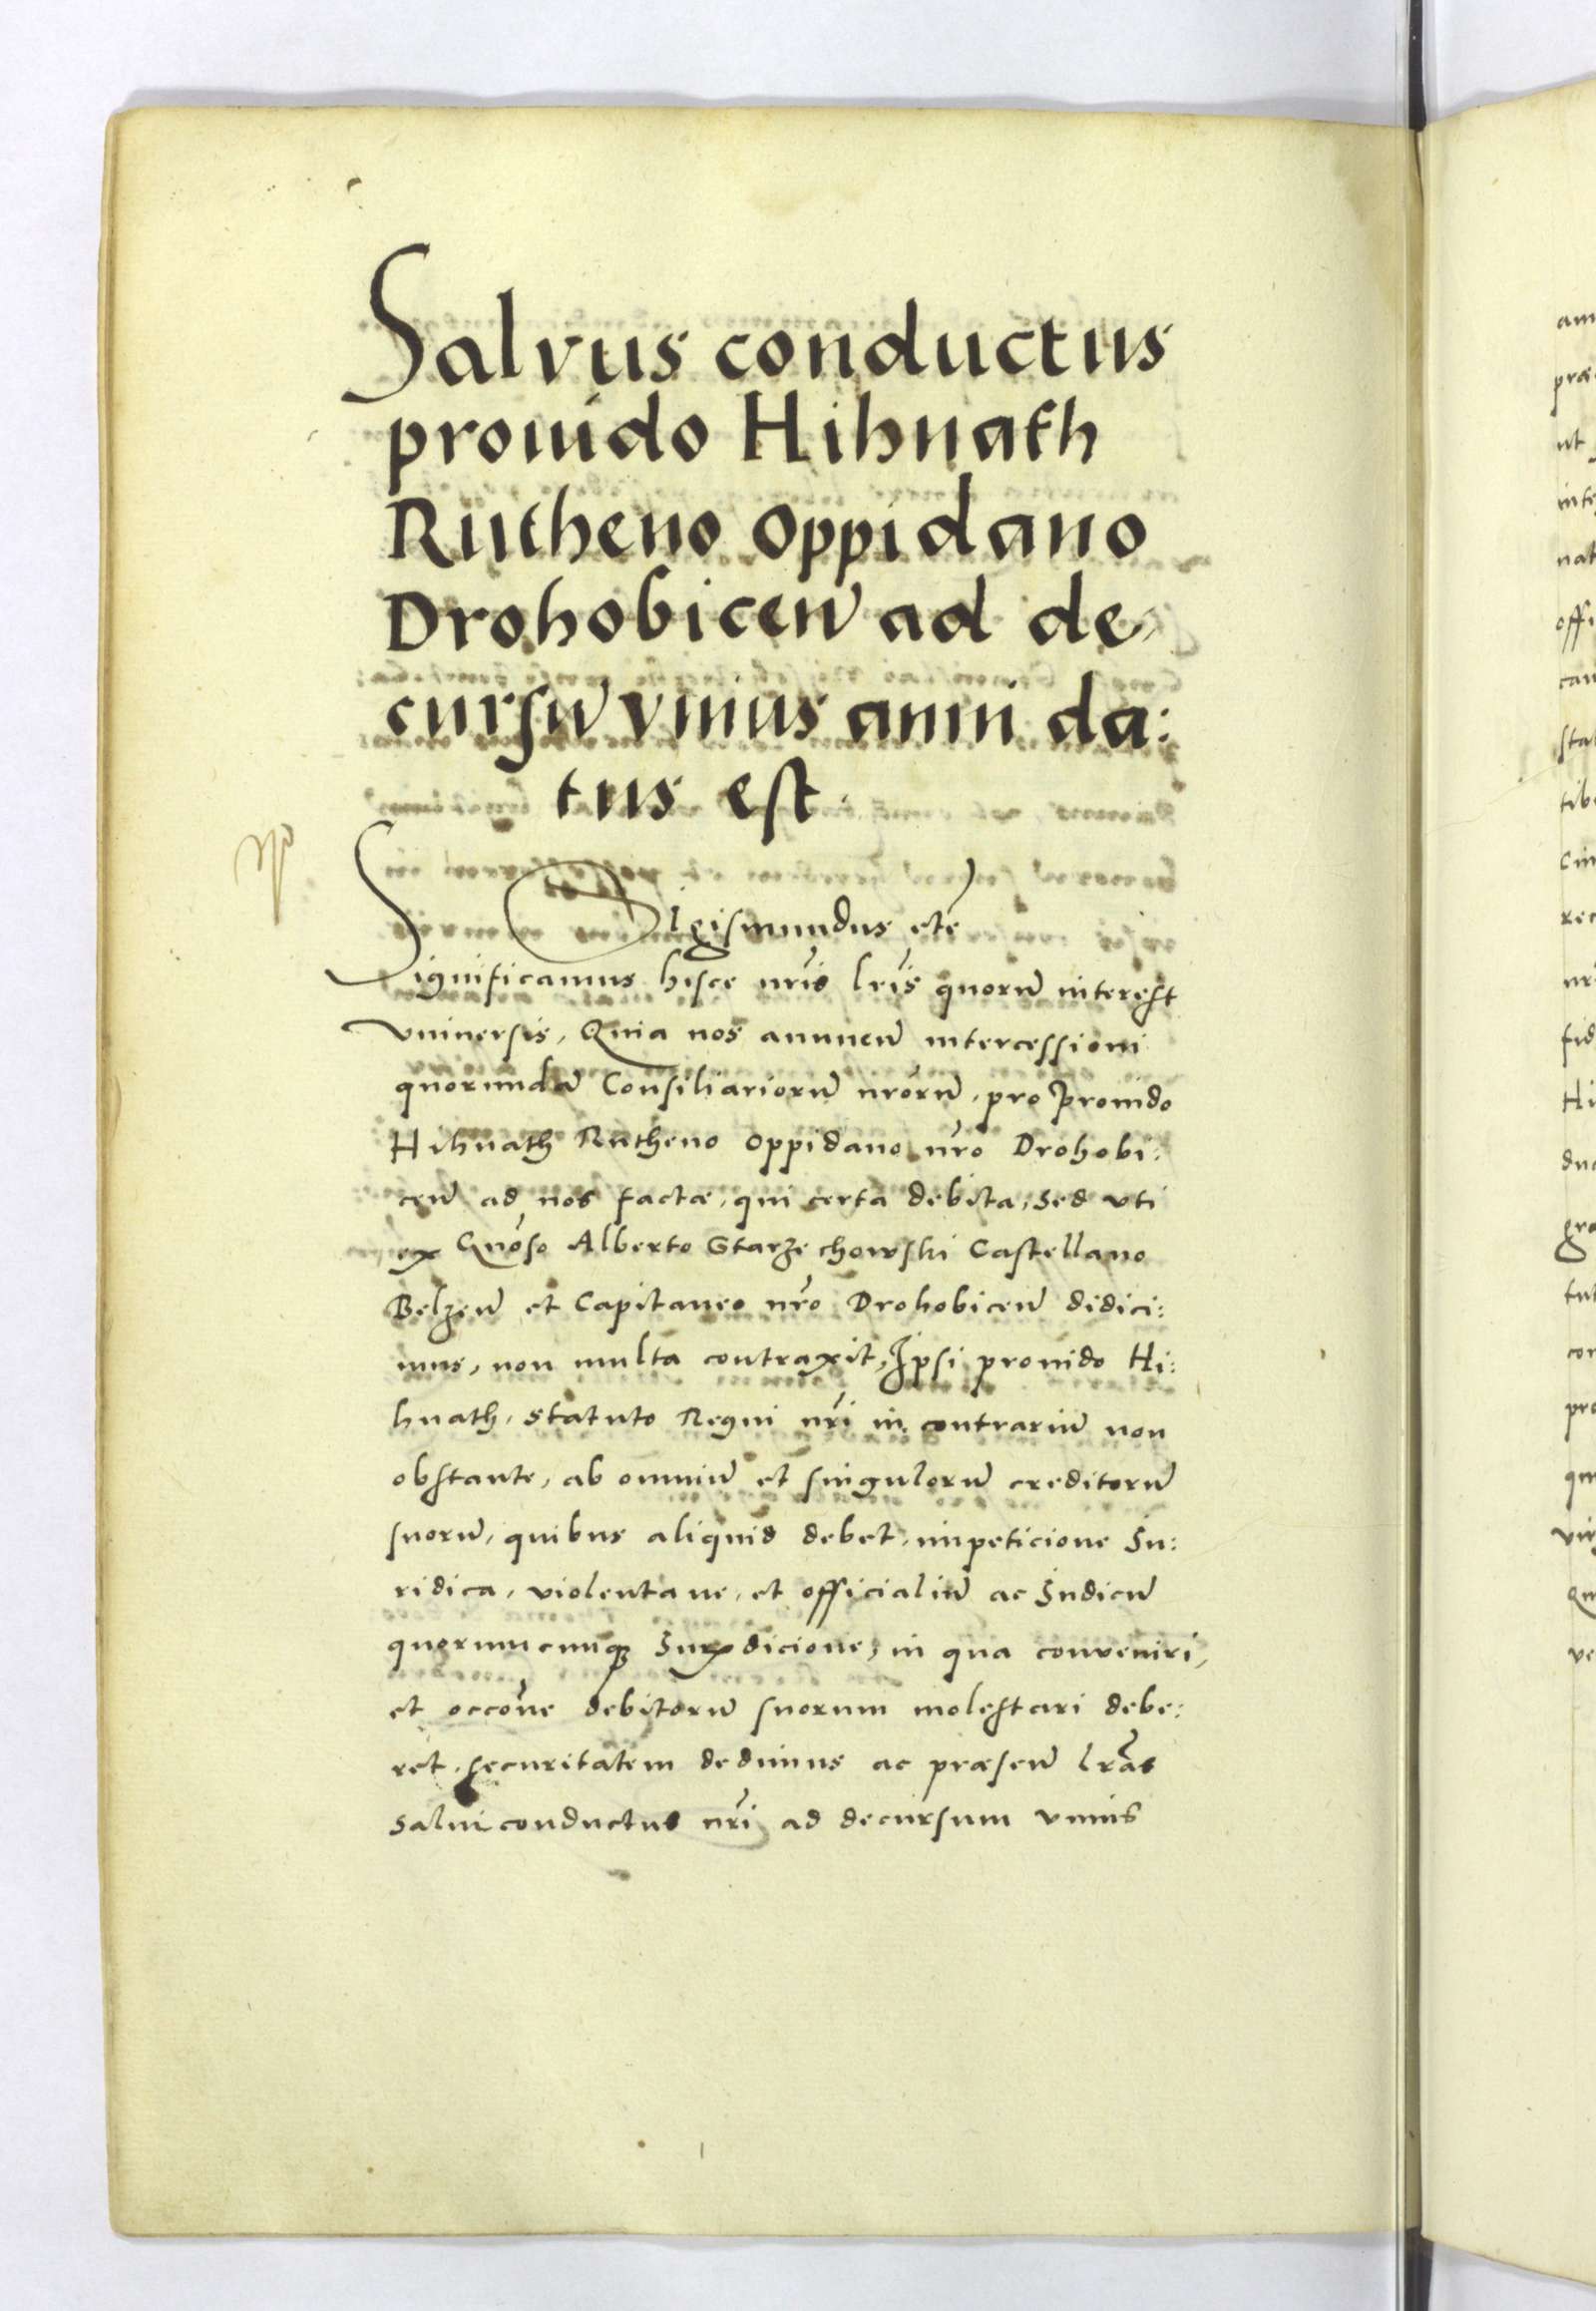 Salvus conductus
prouido Hihnath
Rutheno Oppidano
Drohobiceñ ad de,
cursu̅ vnius anni da:
tus est.
Sigismundus etc̅
Significamus hisce nr̅is lr̅is quoru̅ interest
vniuersis, Quia nos annuen̅ intercessioni
quorunda̅ Consiliarioru̅ nr̅oru̅, pro Prouido
Hihnath Rutheno Oppidano nr̅o Drohobi:
cen̅ ad nos factæ, qui certa debita, sed vti
ex Gn̅oso Alberto Starzechowski Castellano
Belzen̅ et Capitaneo nr̅o Drohobicen̅ didici:
mus, non multa contraxit, Ipsi prouido Hi:
hnath, statuto Regni nr̅i in contrariu̅ non
obstante, ab omniu̅ et singuloru̅ creditoru̅
suoru̅, quibus aliquid debet, impeticione Iu:
ridica, violentaue, et officialiu̅ ac Iudicu̅
quorumcunqꝫ Iurisdicione, in qua conveniri,
et occo̅ne debitoru̅ suorum molestari debe:
ret, securitatem dedimus ac præsen̅ lr̅as
salui conductus nr̅i ad decursum vnius
am
præ
ut
inte
nat
offi
cau
stat
tib
rec
nr
fid
Hi
duc
gra
tut
con
pro
qu
vig
Qu
ve